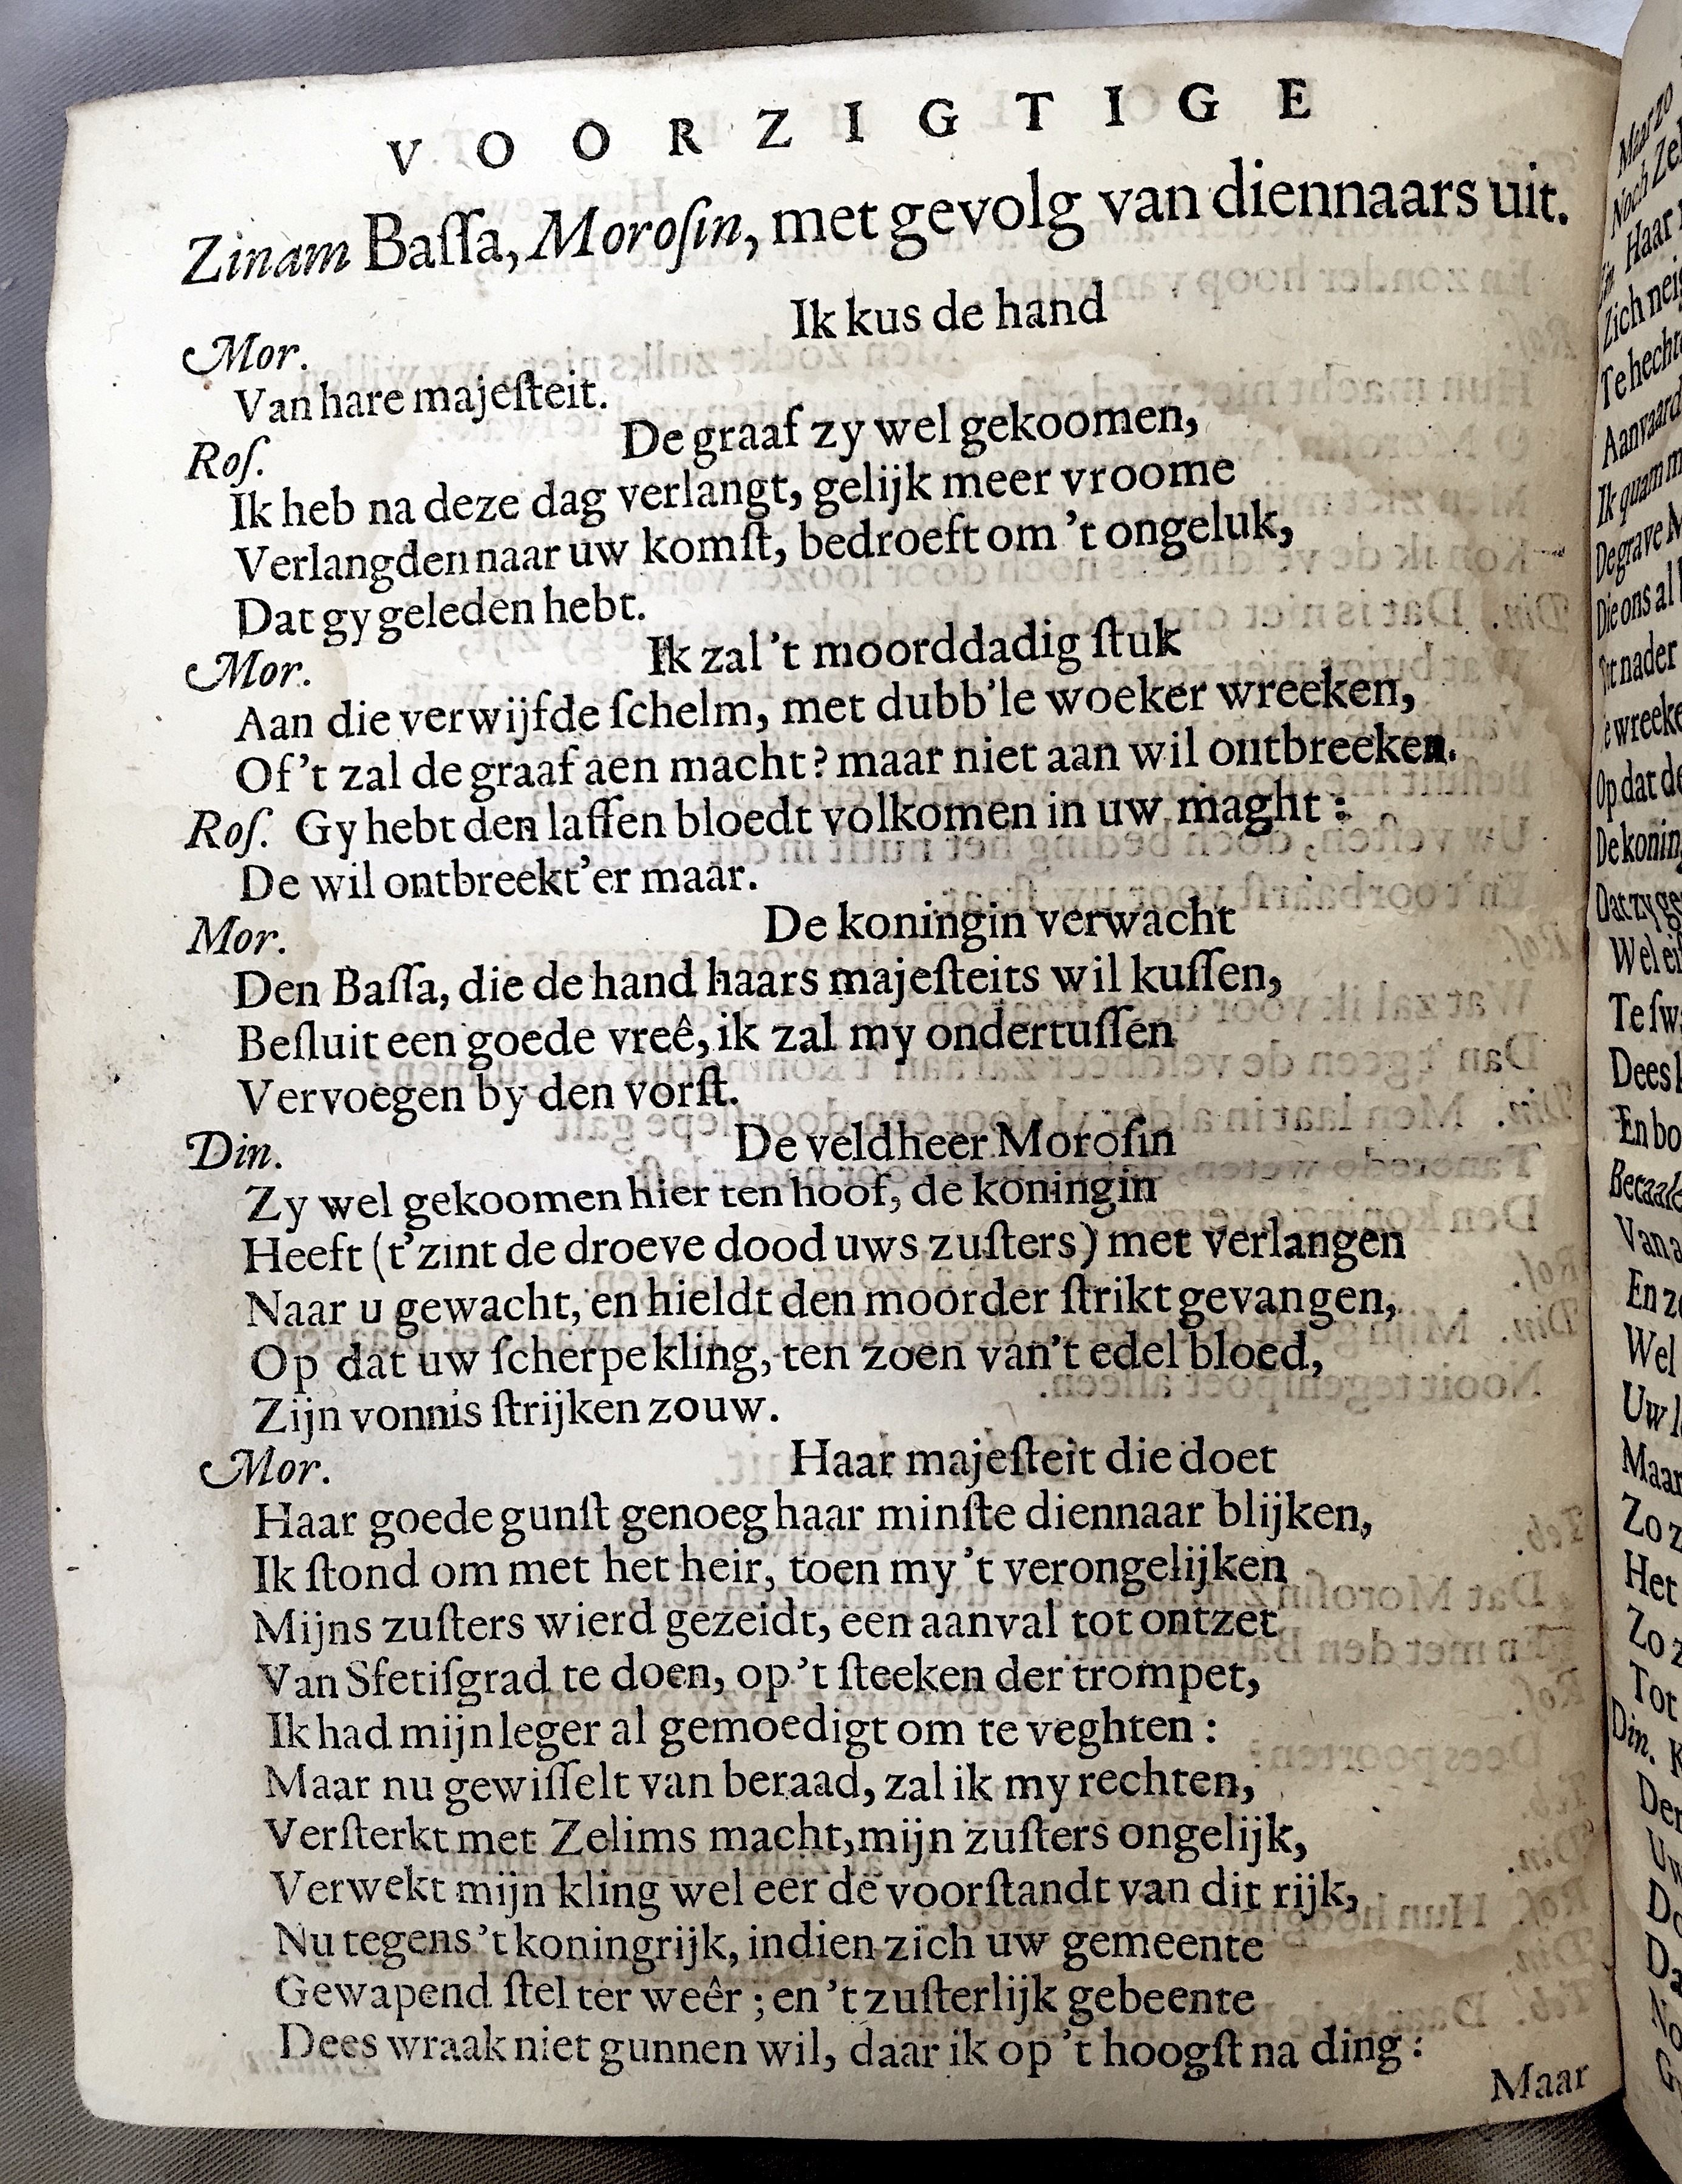 VOORZIGTIGE
Zinam Baſſa, Moroſin, met gevolg van diennaars uit.
Mor. Ik kus de hand
Van hare majeſteit.
Roſ. De graaf zy wel gekoomen,
Ik heb na deze dag verlangt, gelijk meer vroome
Verlangden naar uw komſt, bedroeft om 't ongeluk,
Dat gy geleden hebt.
Mor. Ik zal 't moorddadig ſtuk
Aan die verwijfde ſchelm, met dubb'le woeker wreeken,
Of 't zal de graaf aen macht? maar niet aan wil ontbreeken.
Roſ. Gy hebt den laffen bloedt volkomen in uw maght:
De wil ontbreekt'er maar.
Mor. De koningin verwacht
Den Baſſa, die de hand haars majeſteits wil kuſſen,
Beſluit een goede vreê, ik zal my ondertuſſen
Vervoegen by den vorſt.
Din. De veldheer Moroſin
Zy wel gekoomen hier ten hoof, de koningin
Heeft (t'zint de droeve dood uws zuſters) met verlangen
Naar u gewacht, en hieldt den moorder ſtrikt gevangen,
Op dat uw ſcherpe kling, ten zoen van't edel bloed,
Zijn vonnis ſtrijken zouw.
Mor. Haar majeſteit die doet
Haar goede gunſt genoeg haar minſte diennaar blijken,
Ik ſtond om met het heir, toen my 't verongelijken
Mijns zuſters wierd gezeidt, een aanval tot ontzet
Van Sfetiſgrad te doen, op 't ſteeken der trompet,
Ik had mijn leger al gemoedigt om te veghten:
Maar nu gewiſſelt van beraad, zal ik my rechten,
Verſterkt met Zelims macht, mijn zuſters ongelijk,
Verwekt mijn kling wel eer de voorſtandt van dit rijk,
Nu tegens 't koningrijk, indien zich uw gemeente
Gewapend ſtel ter weêr; en 't zuſterlijk gebeente
Dees wraak niet gunnen wil, daar ik op 't hoogſt na ding:
Maar
Maar zo
Noch Zel
Haar
Zich neig
Te hecht
Aanvaard
Ik quam m
De grave M
Die ons al
nader
wreeke
Op dat de
De konin
Dat zy ge
Wel eiſ
Te ſw
Dees
En bo
Betaale
Van a
En z
Wel
Uw l
Maar
Zo z
Het
Zo z
Tot
Din. K
Der
Uw
Do
Da
No
G